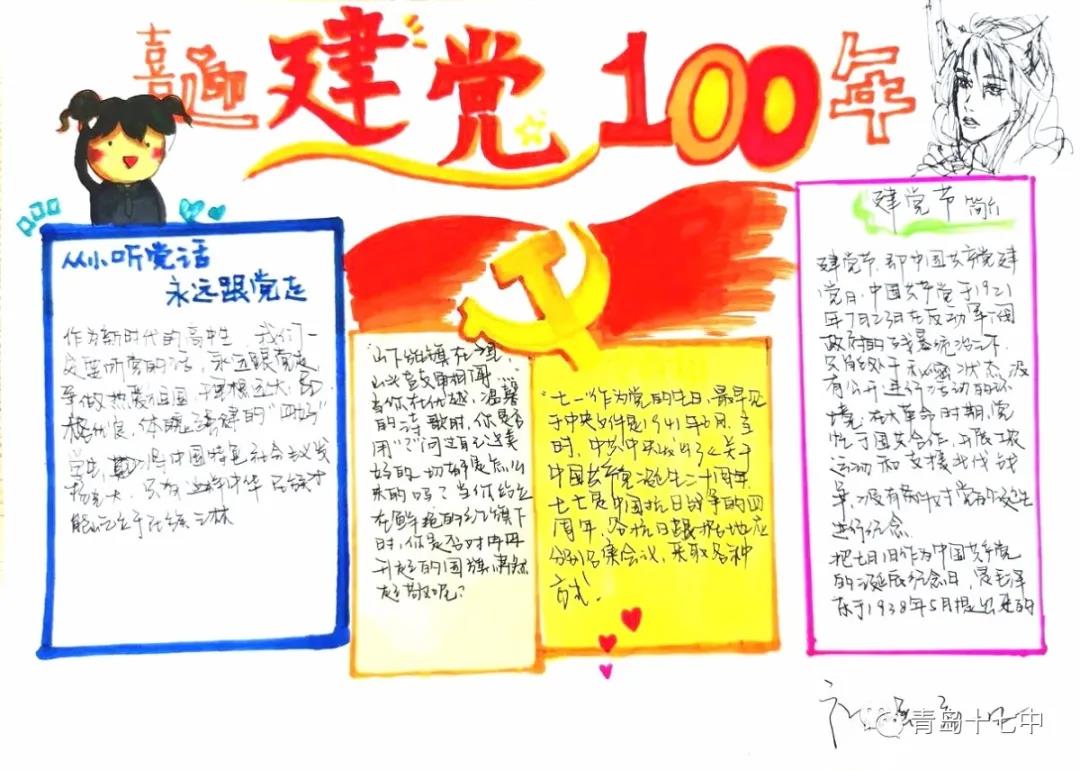 喜迎建党100年
从小听党话
永远跟党走
作为新时代的高中生,我们一
定要听党的话,永远跟党走
争做热爱祖国、理想远大、品
格优良、体魄强健的"四好"
学生,将中国特色社会主义发
扬光大,只有这样中华民族才
能屹立于民族之林
山下旌旗在望,
山头鼓角相闻
当你在优越、温馨
的诗歌时,你是否
用"?"问过自己这美
好的一切都是怎么
来的吗?当你站立
在鲜艳的红旗下
时,你是否对冉冉
升起的国旗肃然
起敬呢?
"七一"作为党的生日,最早见
于中央文件是1941年6月。当
时,中共中央发出了《关于
中国共产党诞生二十周年
七七是中国抗日战争的四
周年,各抗日根据地应
分别召集会议,采取各种
方式!
建党节简介
建党节,即中国共产党建
党日,中国共产党于1921
年7月23日在反动军阀
政府的残暴统治之下,
只能处于秘密状态,没
有公开进行活动的环
境。在大革命时期,党
忙于国共合作、开展工农
运动和支援北伐战
争,没有条件对党的诞生
进行纪念
把七月1日作为中国共产党
的诞辰纪念日,是毛泽
东于1938年5月提出来的
青岛十七中